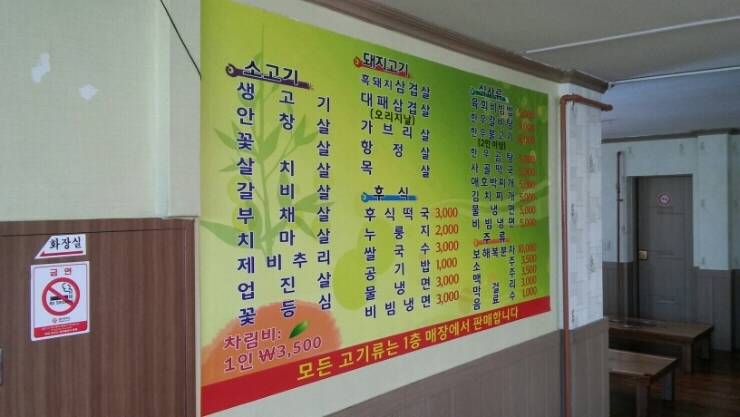 소고기
생고기
안창살
꽃살
살치살
갈비살
부채살
치마살
제비추리
업진살
꽃등심
차림비:
1인 ₩3,500
돼지고기
흑돼지삼겹살
대패삼겹살
(오리지날)
가브리살
항정살
목살
후식
후식떡국 3,000
누룽지 2,000
쌀국수 3,000
공기밥 1,000
물냉면 3,000
비빔냉면 3,000
식사류
육회비빔밥
한우갈비탕
한우불고기
(2인이상)
한우곰탕
사골떡국 5,000
애호박찌개 5,000
김치찌개 5,000
물냉면 5,000
비빔냉면 5,000
주류
보해복분자 10,000
소주 3,500
맥주 3,500
막걸리 3,000
음료수 1,000
모든 고기류는 1층 매장에서 판매합니다
화장실
금연